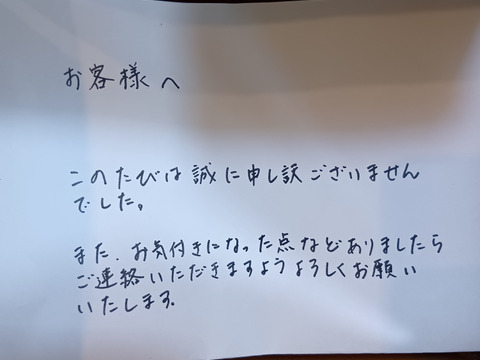 お客様へ
このたびは誠に申し訳ございません
でした。
また、お気付きになった点などありましたら
ご連絡いただきますようよろしくお願い
いたします。